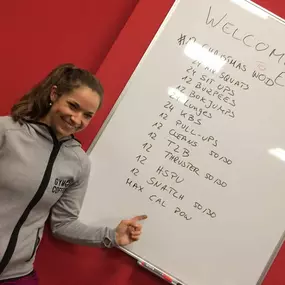 WELCOME
CHRISTMAS WOD
24 SQUATS
24 SIT UPS
12 BURPEES
12 BOX JUMPS
24 LUNGES
24 KBS
12 PULL-UPS
12 CLEANS 50/30
12 T2B
12 THRUSTER 50/30
12 HSPU
12 SNATCH 50/30
MAX CAL ROW